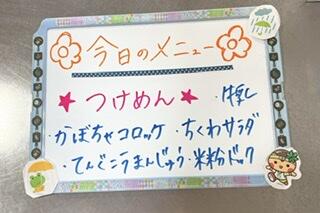 今日のメニュー
★つけめん ・蒸し
・かぼちゃコロッケ ・ちくわサラダ
・てんぐこうまんじゅう ・米粉ドック